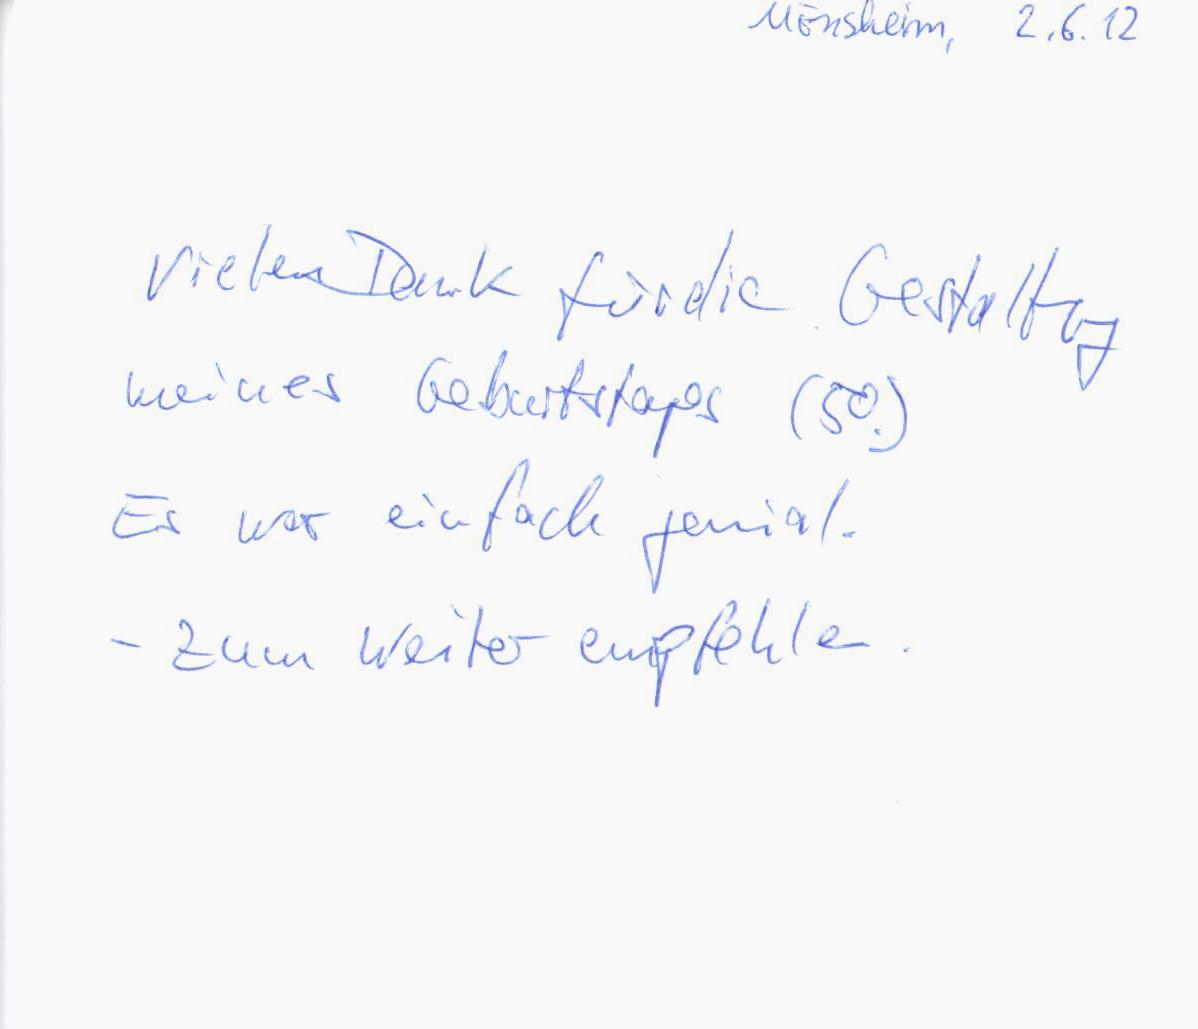 Mönsheim, 2.6.12
Vielen Dank für die Gestaltung
meines Geburtstages (50.)
Es war einfach genial.
- Zum weiter empfehlen.